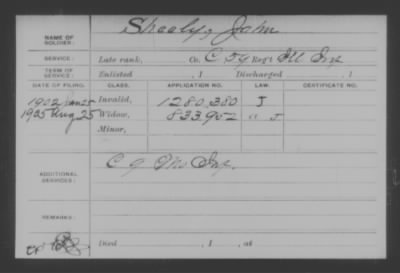 NAME OF SOLDIER: Sheely, John
SERVICE: Late rank, Co. C 54 Reg't Ill Inf
TERM OF SERVICE: Enlisted , 1 Discharged , 1
DATE OF FILING. CLASS. APPLICATION NO. LAW. CERTIFICATE NO.
1902 Jan 25 Invalid, 1280,380 J
1905 Aug 25 Widow, 833,902 J
Minor,
ADDITIONAL SERVICES: C 9 Mo Inf.
REMARKS:
Died , 1 , at